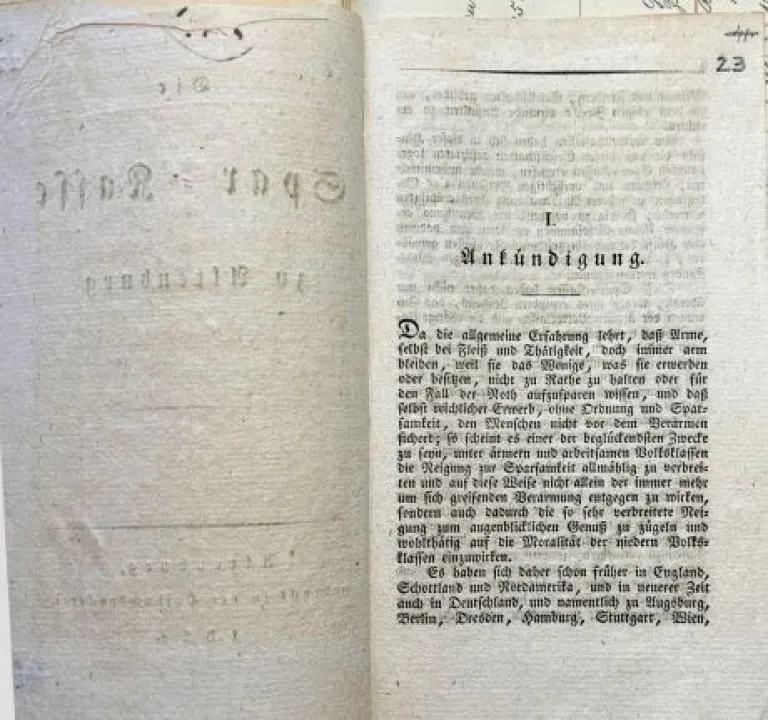 23
I.
Ankündigung.
Da die allgemeine Erfahrung lehrt, daß Arme,
selbst bei Fleiß und Thätigkeit, doch immer arm
bleiben, weil sie das Wenige, was sie erwerben
oder besitzen, nicht zu Rathe zu halten oder für
den Fall der Noth aufzusparen wissen, und daß
selbst reichlicher Erwerb, ohne Ordnung und Spar-
samkeit, den Menschen nicht vor dem Verarmen
sichert; so scheint es einer der beglückendsten Zwecke
zu seyn, unter ärmern und arbeitsamen Volksklassen
die Neigung zur Sparsamkeit allmählig zu verbrei-
ten und auf diese Weise nicht allein der immer mehr
um sich greifenden Verarmung entgegen zu wirken,
sondern auch dadurch die so sehr verbreitete Nei-
gung zum augenblicklichen Genuß zu zügeln und
wohlthätig auf die Moralität der niedern Volks-
klassen einzuwirken.
Es haben sich daher schon früher in England,
Schottland und Nordamerika, und in neuerer Zeit
auch in Deutschland, und namentlich zu Augsburg,
Berlin, Dresden, Hamburg, Stuttgart, Wien,